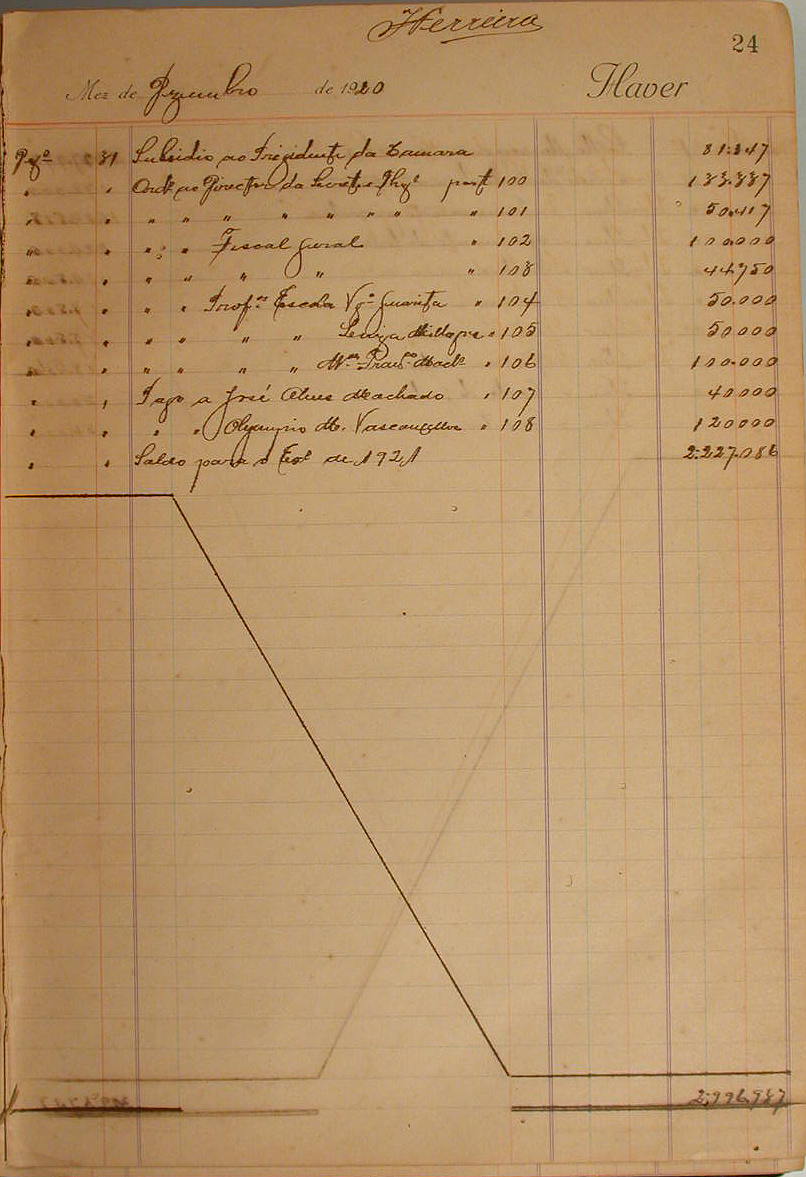 Herreira
24
Mez de Dezembro de 1920 Haver
Dezº 31 Subsidio ao Prezidente da Camara 81.347
" " Ord. ao Director da Secret. port 100 133.337
" " " " " " " " " " 101 50.417
" " " " " Fiscal Geral " 102 100.000
" " " " " " " " 103 44.750
" " " " Profªs Escola Vª Guarita " 104 50.000
" " " " " " " " 105 50000
" " " " " " Mª " 106 100.000
" " Pago a José Alves Machado " 107 40.000
" " " " Olympio M. Vasconcellos " 108 120000
" " Saldo para o Exº de 1921 2:227.086
2:996.937